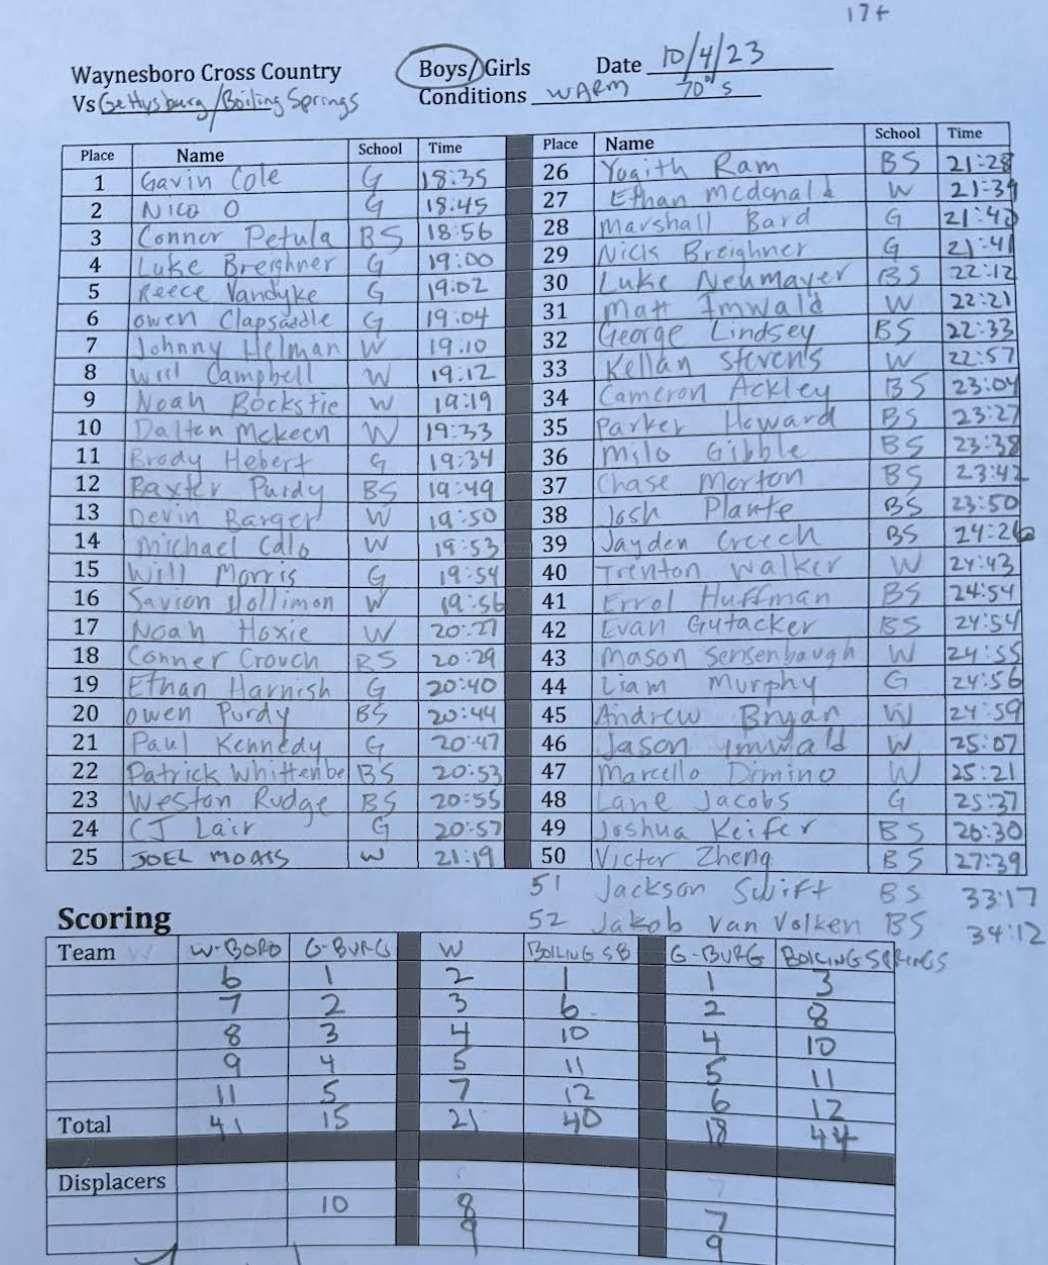 17+
Waynesboro Cross Country Boys/Girls Date 10/4/23
Vs Gettysburg/Boiling Springs Conditions WARM 70°'s
Place Name School Time Place Name School Time
1 Gavin Cole G 18:35 26 Yogith Ram BS 21:28
2 Nico O G 18:45 27 Ethan mcdonald W 21:39
3 Connor Petula BS 18:56 28 Marshall Bard G 21:40
4 Luke Breighner G 19:00 29 Nick Breighner G 21:41
5 Reece Vandyke G 19:02 30 Luke Neumayer BS 22:12
6 owen Clapsaddle G 19:04 31 Matt Imwald W 22:21
7 Johnny Helman W 19:10 32 George Lindsey BS 22:33
8 Will Campbell W 19:12 33 Kellan Stevens W 22:57
9 Noah Bockstie W 19:19 34 Cameron Ackley BS 23:04
10 Dalton Mckeen W 19:33 35 Parker Howard BS 23:27
11 Brody Hebert G 19:34 36 Milo Gibble BS 23:38
12 Baxter Purdy BS 19:49 37 Chase Morton BS 23:42
13 Devin Barger W 19:50 38 Josh Plante BS 23:50
14 Michael Calo W 19:53 39 Jayden Creech BS 24:26
15 Will Morris G 19:54 40 Trenton Walker W 24:43
16 Savion Hollimon W 19:56 41 Errol Huffman BS 24:54
17 Noah Hoxie W 20:27 42 Evan Gutacker BS 24:54
18 Conner Crouch BS 20:29 43 Mason Sensenbaugh W 24:55
19 Ethan Harnish G 20:40 44 Liam Murphy G 24:56
20 owen Purdy BS 20:44 45 Andrew Bryan W 24:59
21 Paul Kennedy G 20:47 46 Jason ymwald W 25:07
22 Patrick Whittenbe BS 20:53 47 Marcello Dimino W 25:21
23 Weston Rudge BS 20:55 48 Lane Jacobs G 25:37
24 CJ Lair G 20:57 49 Joshua Keifer BS 26:30
25 JOEL MOATS W 21:19 50 Victor Zheng BS 27:39
51 Jackson Swift BS 33:17
52 Jakob Van Volken BS 34:12
Scoring
Team W-BORO G-BURG W BOILING SB G-BURG BOILING SPRINGS
6 1 2 1 1 3
7 2 3 6 2 8
8 3 4 10 4 10
9 4 5 11 5 11
11 5 7 12 6 12
Total 41 15 21 40 18 44
Displacers
10 8 7
9 9